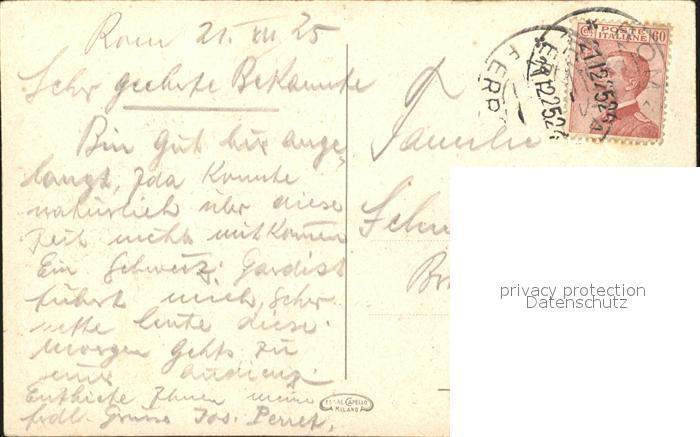 Rom 21. XII 25
Sehr geehrte Bekannte
Bin gut hier ange=
langt, Ida konnte
natürlich über diese
Zeit nicht mitkommen
Ein Schweiz. Gardist
führt mich, sehr
nette Leute diese.
Morgen gehts zu
einer Audienz.
Entbiete Ihnen meine
frdl. Grüsse Jos. Perret.
Familie
POSTE
ITALIANE
60
ROMA
FERR
21.12.25
CAPELLO
MILANO
privacy protection
Datenschutz